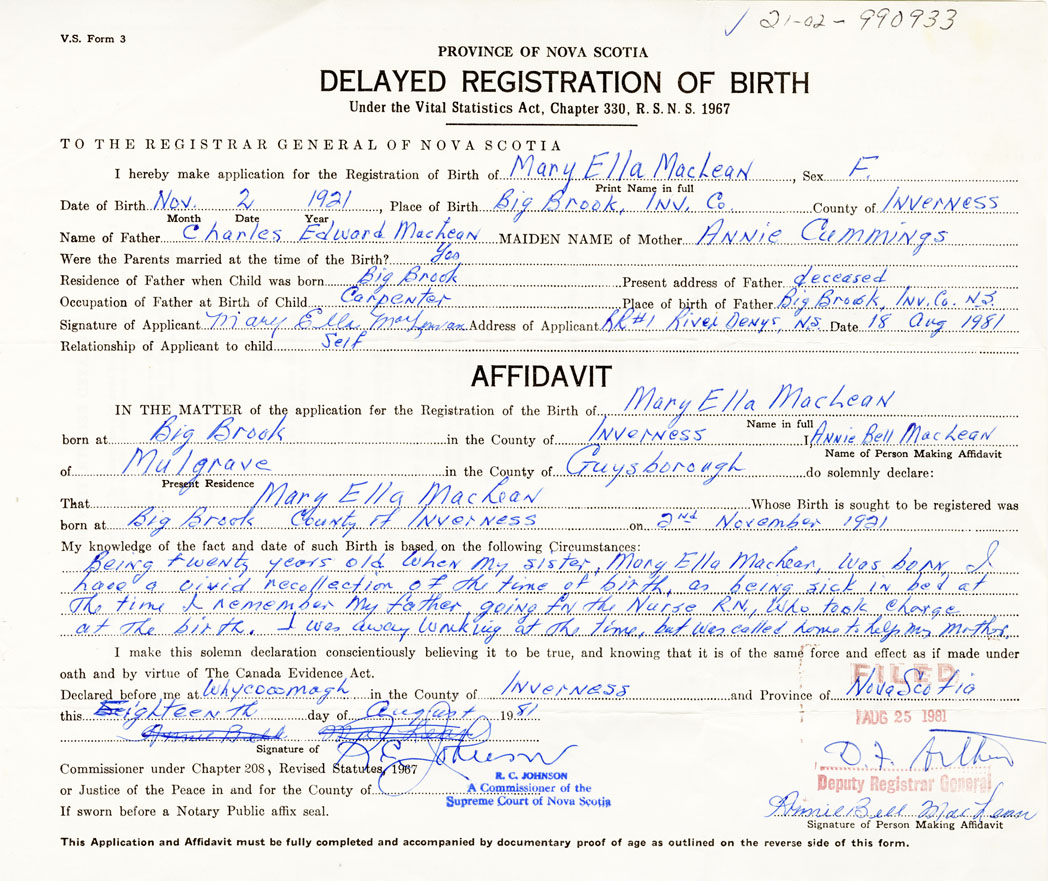 21-02-990933
V.S. Form 3
PROVINCE OF NOVA SCOTIA
DELAYED REGISTRATION OF BIRTH
Under the Vital Statistics Act, Chapter 330, R.S.N.S. 1967
TO THE REGISTRAR GENERAL OF NOVA SCOTIA
I hereby make application for the Registration of Birth of Mary Ella MacLean, Sex F.
Print Name in full
Date of Birth Nov. 2 1921, Place of Birth Big Brook, Inv. Co. County of Inverness
Month Date Year
Name of Father Charles Edward MacLean MAIDEN NAME of Mother Annie Cummings
Were the Parents married at the time of the Birth? Yes
Residence of Father when Child was born Big Brook Present address of Father deceased
Occupation of Father at Birth of Child Carpenter Place of birth of Father Big Brook, Inv. Co. N.S.
Signature of Applicant Mary Ella Address of Applicant RR#1 River Denys, N.S. Date 18 Aug 1981
Relationship of Applicant to child Self
AFFIDAVIT
IN THE MATTER of the application for the Registration of the Birth of Mary Ella MacLean
Name in full
born at Big Brook in the County of Inverness I, Annie Bell MacLean
Name of Person Making Affidavit
of Mulgrave in the County of Guysborough do solemnly declare:
Present Residence
That Mary Ella MacLean Whose Birth is sought to be registered was
born at Big Brook County of Inverness on 2nd November 1921
My knowledge of the fact and date of such Birth is based on the following Circumstances:
Being twenty years old when my sister, Mary Ella MacLean, was born, I
have a vivid recollection of the time of birth, as being sick in bed at
the time I remember my father, going for the Nurse R.N., who took charge
at the birth. I was away working at the time, but was called home to help my Mother.
I make this solemn declaration conscientiously believing it to be true, and knowing that it is of the same force and effect as if made under
oath and by virtue of The Canada Evidence Act.
FILED
Declared before me at Whycocomagh in the County of Inverness and Province of Nova Scotia
this Eighteenth day of August 1981
AUG 25 1981
Annie Bell MacLean
Signature of R C Johnson
Commissioner under Chapter 208, Revised Statutes, 1967
or Justice of the Peace in and for the County of
R. C. JOHNSON
A Commissioner of the
Supreme Court of Nova Scotia
Deputy Registrar General
If sworn before a Notary Public affix seal.
Annie Bell MacLean
Signature of Person Making Affidavit
This Application and Affidavit must be fully completed and accompanied by documentary proof of age as outlined on the reverse side of this form.